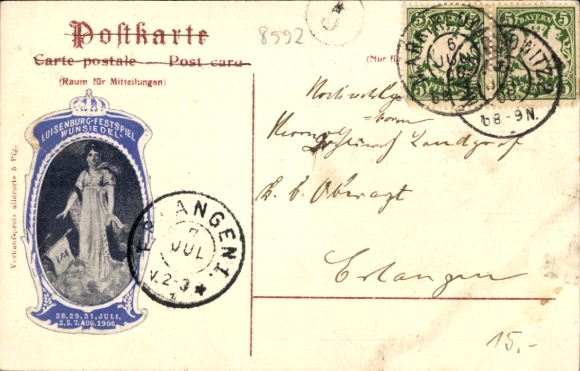 Postkarte
Carte postale — Post card
(Raum für Mitteilungen)
8592
(Nur für
BAYERN
5
BAYERN
5
6
JUL
8-9N.
LUISENBURG-FESTSPIEL
WUNSIEDEL
28.29.31. JULI.
2.5.7. AUG. 1906.
Verkaufspreis allerorts 5 Pfg.
ERLANGEN 1.
7
JUL
V. 2-3
Landgraf
k. b. Oberarzt
Erlangen
15.-